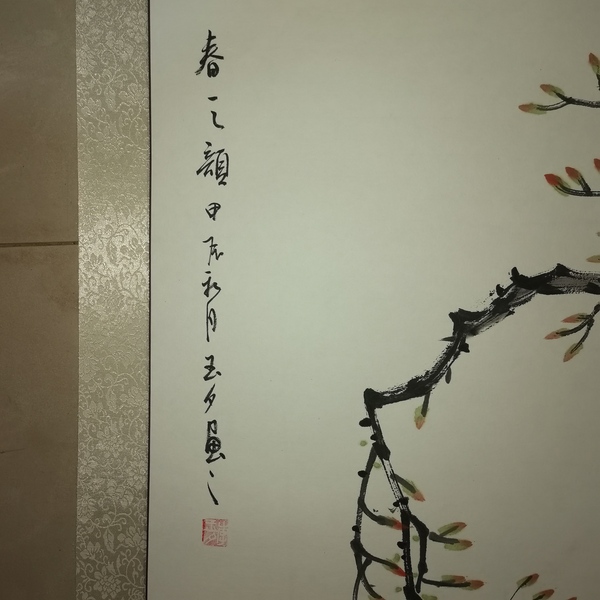 春之顏甲辰初月玉夕畫之